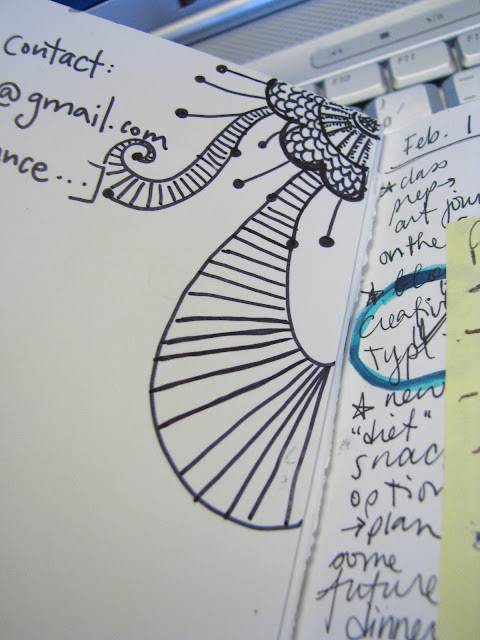 contact:
@gmail.com
ance...]
F10
F11
Feb. 1
☆ class
prep →
art jour
on the
☆
creativ
type
☆ new
"diet"
snac
option
→ plan
some
future
dinner